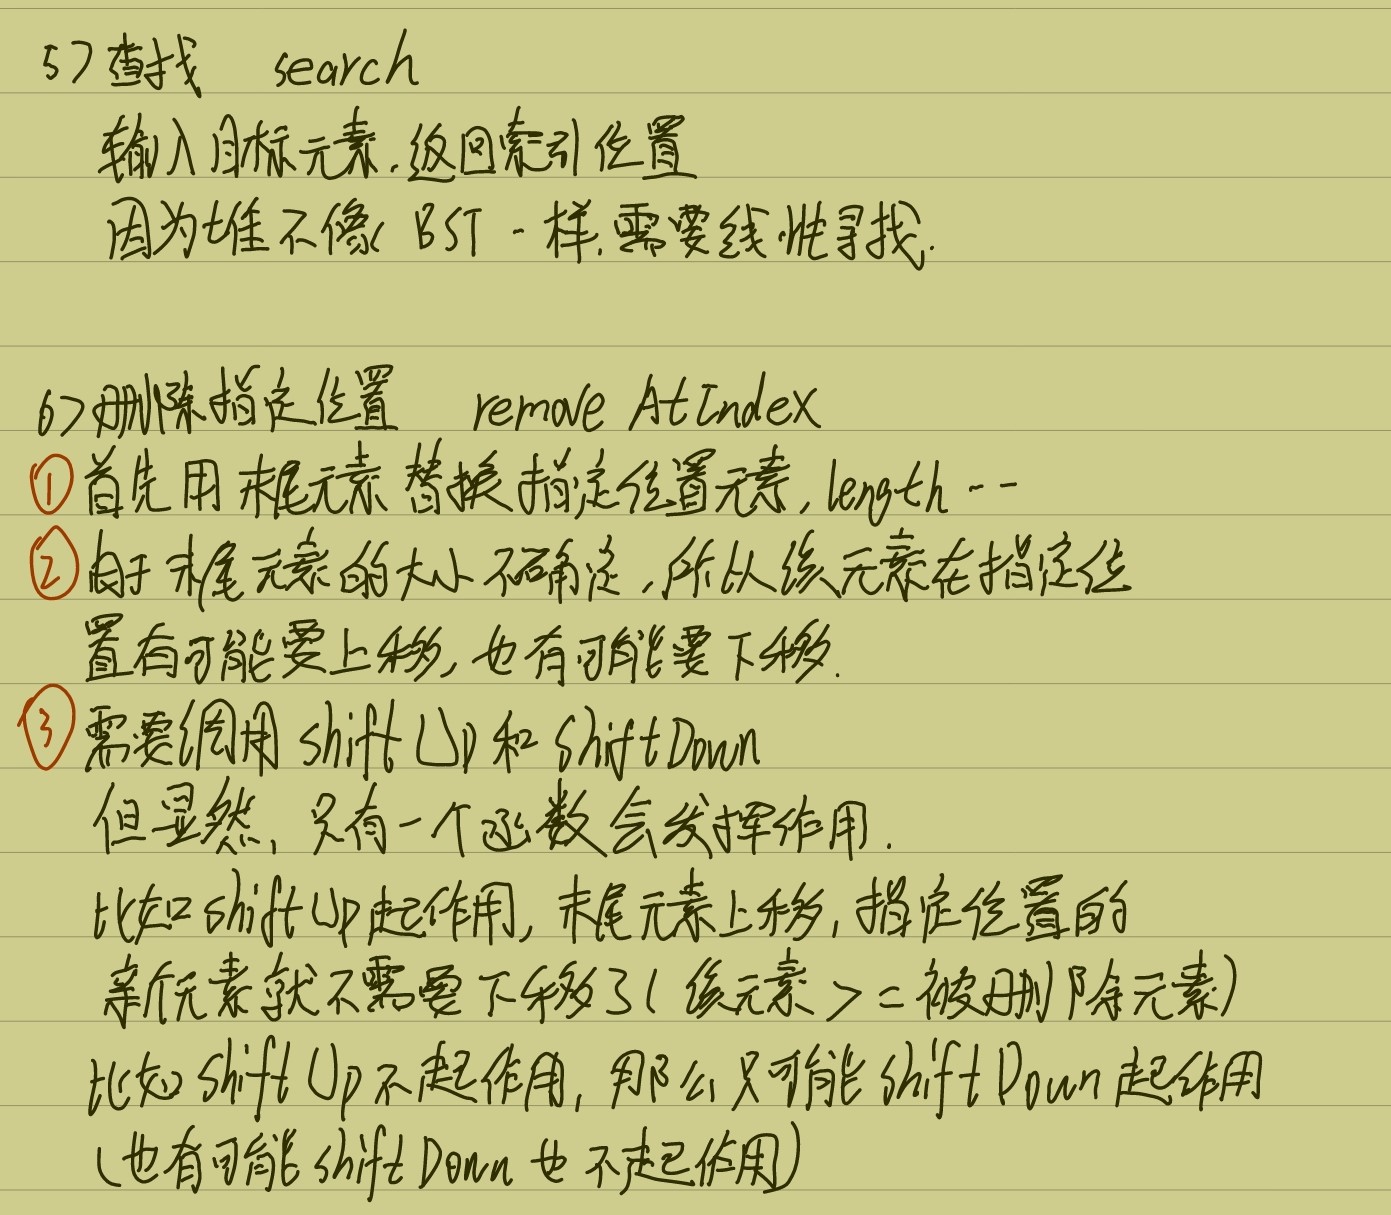 5>查找 search
输入目标元素.返回索引位置
因为堆不像BST一样.需要线性寻找.
6>删除指定位置 remove AtIndex
①首先用末尾元素替换指定位置元素,length--
②由于末尾元素的大小不确定,所以该元素在指定位
置有可能要上移,也有可能要下移.
③需要调用shiftUp和shiftDown
但显然,只有一个函数会发挥作用.
比如shiftUp起作用,末尾元素上移,指定位置的
新元素就不需要下移了(该元素>=被删除元素)
比如shiftUp不起作用,那么只可能shiftDown起作用
(也有可能shiftDown也不起作用)